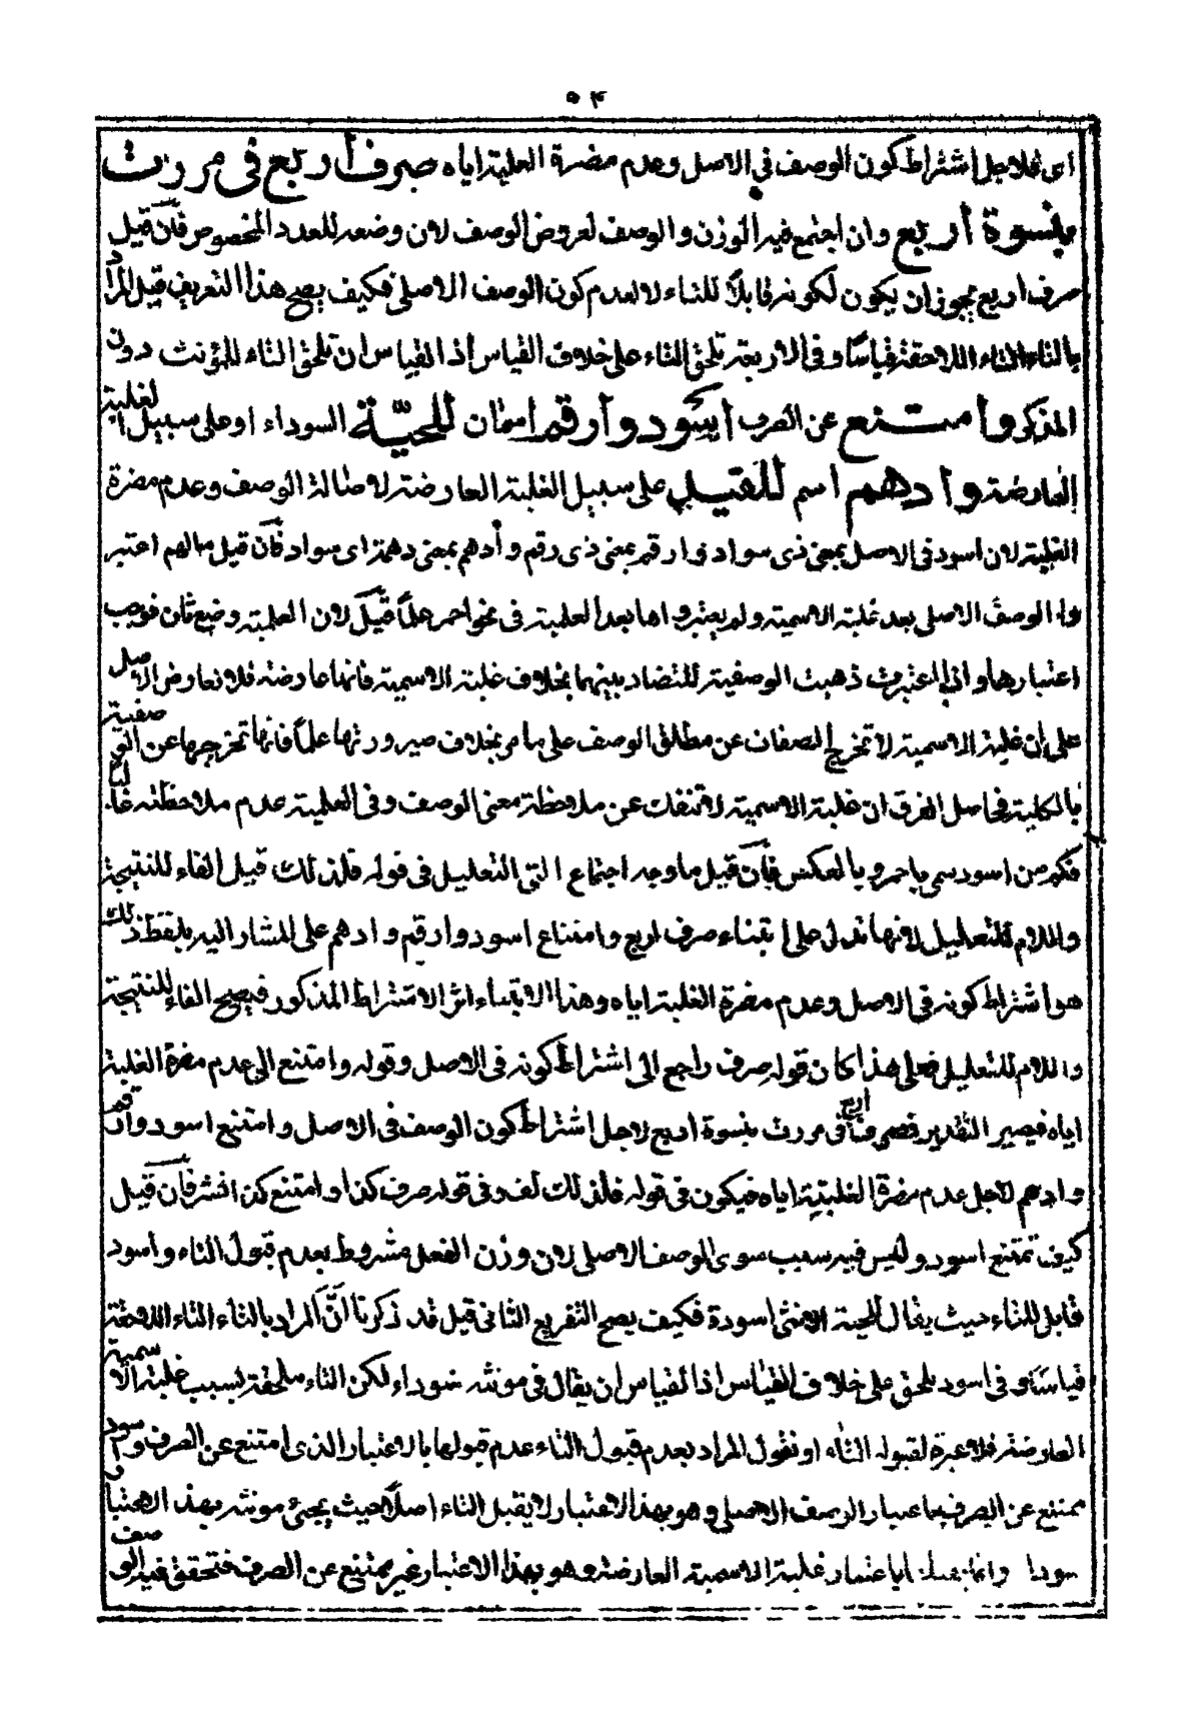 ٥٤
اى فلاجل اشتراط كون الوصف في الاصل وعدم مضرة الغلبة اياه صرف أربع فى مررت
بنسوة أربع وان اجتمع فيه الوزن والوصف لعروض الوصف لان وضعه للعدد المخصوص فان قيل
صرف اربع يجوز ان يكون لكونه قابلاً للتاء لا لعدم كون الوصف الاصلى فكيف يصح هذا التعريف قيل المراد
بالتاء التاء اللاحقة قياسًا وفى الاربعة تلحق التاء على خلاف القياس اذ القياس ان تلحق التاء للمؤنث دون
المذكر وامتنع عن الصرف أسود وأرقم اسمان للحيّة السوداء او على سبيل الغلبة
العارضة وأدهم اسم للقيد على سبيل الغلبة العارضة لاصالة الوصف وعدم مضرة
الغلبة لان اسود فى الاصل بمعنى ذى سواد وارقم بمعنى ذى رقم وأدهم بمعنى دهمة اى سواد فان قيل مالهم اعتبر
وا الوصف الاصلى بعد غلبة الاسمية ولم يعتبروها بعد العلمية فى نحو احمر علمًا قيل لان العلمية وضع ثان فوجب
اعتبارها واذا اعتبرت ذهبت الوصفية للتضاد بينهما بخلاف غلبة الاسمية فانها عارضة فلا تعارض الاصل
على ان غلبة الاسمية لا تخرج الصفات عن مطلق الوصف على ما مر بخلاف صيرورتها علمًا فانها تخرجها عن الوصفية
بالكلية فحاصل الفرق ان غلبة الاسمية لا تنفك عن ملاحظة معنى الوصف وفى العلمية عدم ملاحظته غالبًا
فكم من اسود سمى باحمر وبالعكس فان قيل ما وجه اجتماع التى التعليل فى قوله فلذلك قيل الفاء للنتيجة
واللام للتعليل لانها تدل على ابتناء صرف اربع وامتناع اسود وارقم وادهم على المشار اليه بلفظ ذلك
هو اشتراط كونه فى الاصل وعدم مضرة الغلبة اياه وهذا الابتناء اثر الاشتراط المذكور فيصح الفاء للنتيجة
واللام للتعليل فعلى هذا كان قوله صرف راجع الى اشتراط كونه فى الاصل وقوله وامتنع الى عدم مضرة الغلبة
اياه فيصير التقدير فصرف أربع فى مررت بنسوة اربع لاجل اشتراط كون الوصف فى الاصل وامتنع اسود وارقم
وادهم لاجل عدم مضرة الغلبة اياه فيكون فى قوله فلذلك لف وفى قوله صرف كذا وامتنع كذا نشر فان قيل
كيف تمتنع اسود وليس فيه سبب سوى الوصف الاصلى لان وزن الفعل مشروط بعدم قبول التاء واسود
قابل للتاء حيث يقال للحية الانثى اسودة فكيف يصح التفريع الثانى قيل قد ذكرنا انّ المراد بالتاء التاء اللاحقة
قياسًا وفى اسود يلحق على خلاف القياس اذ القياس ان يقال فى مونثه سوداء لكن التاء ملحقة بسبب غلبة الاسمية
العارضة فلا عبرة لقبوله التاء او نقول المراد بعدم قبول التاء عدم قبولها بالاعتبار الذى امتنع عن الصرف واسود
ممتنع عن الصرف باعتبار الوصف الاصلى وهو بهذا الاعتبار لا يقبل التاء اصلاً حيث يجئ مونثه بهذا الاعتبار
سودا وانما يقبلها باعتبار غلبة الاسمية العارضة وهو بهذا الاعتبار غير ممتنع عن الصرف فتحقق فيه الوصف